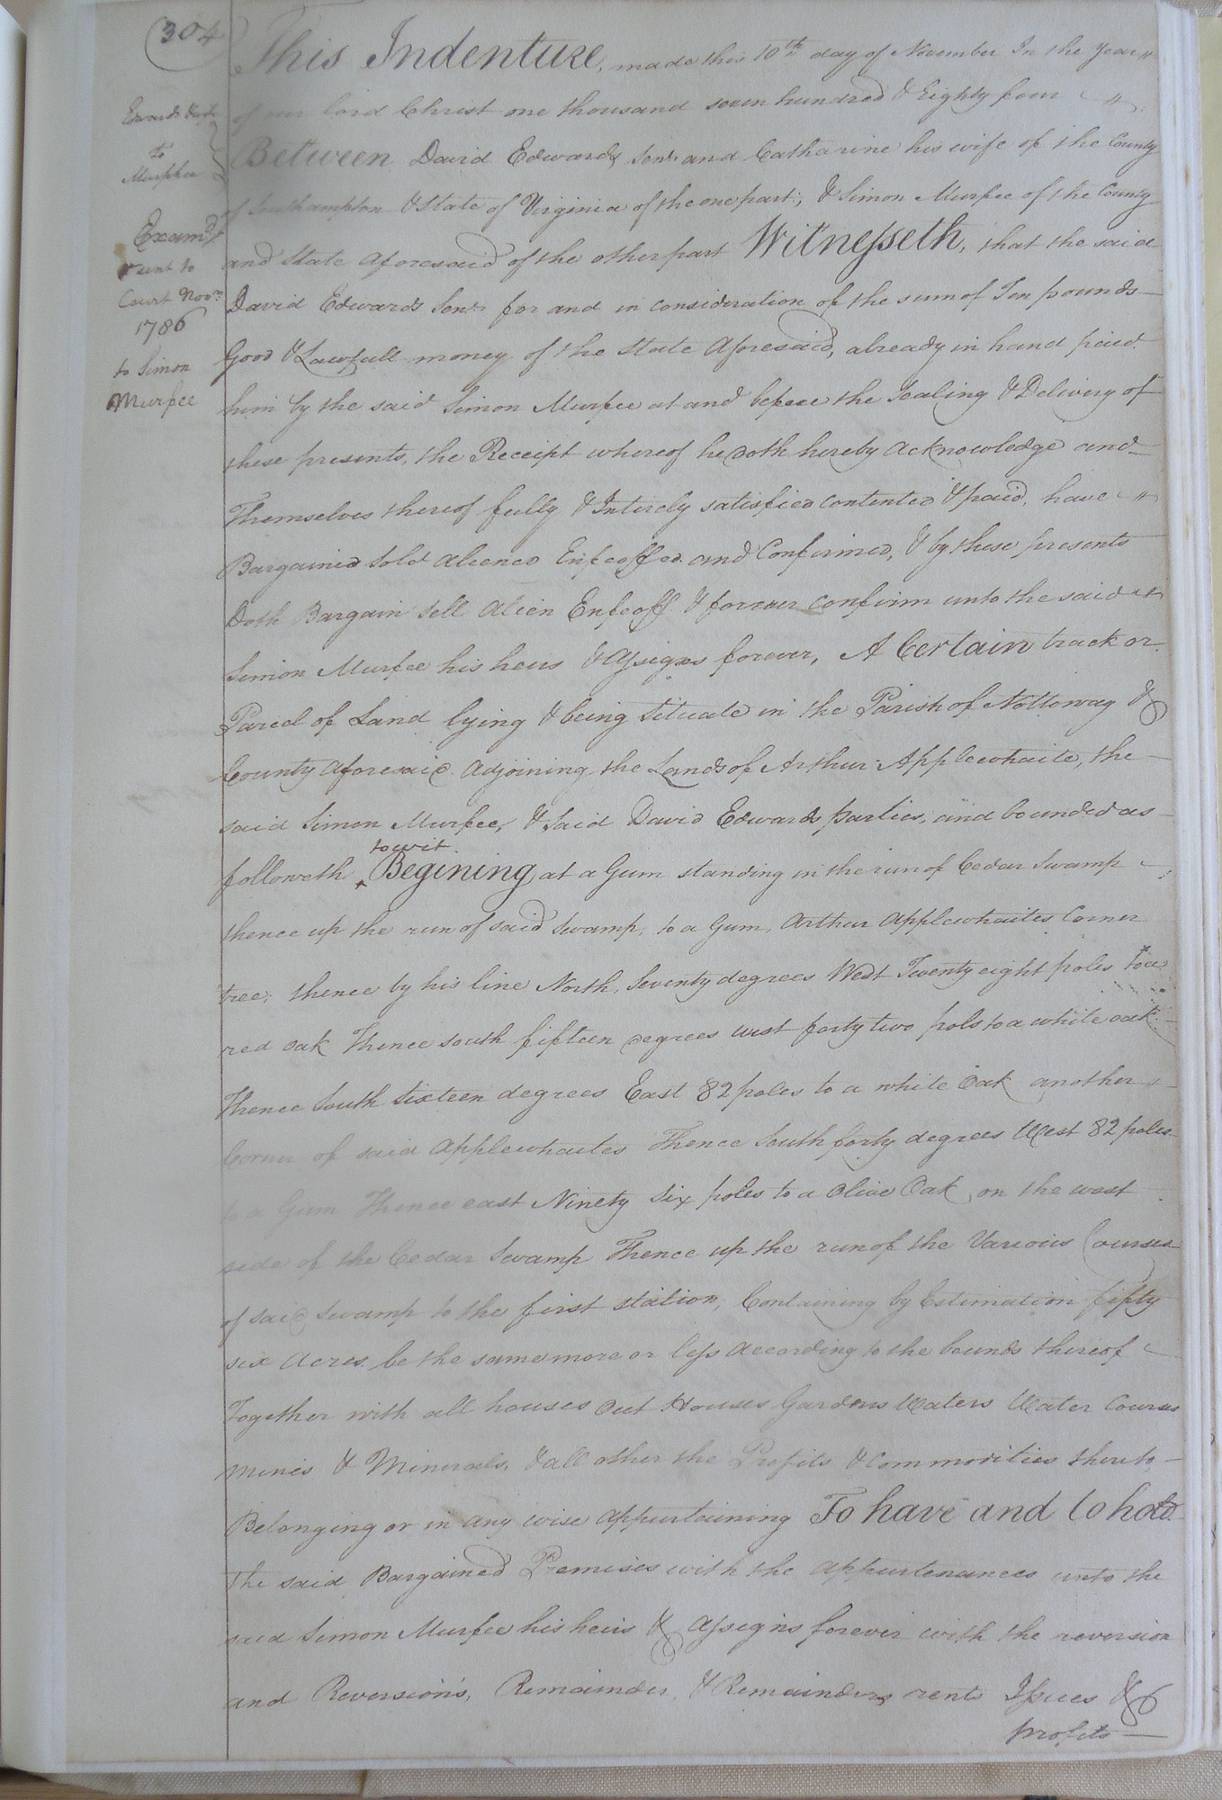 304
This Indenture, made this 10th day of November In the Year "
of our Lord Christ one thousand seven hundred & Eighty four
Between David Edwards Senr and Catharine his wife of the County
of Southampton & State of Virginia of the one part; & Simon Murfee of the County
and State Aforesaid of the other part Witnesseth, that the said
David Edwards Senr for and in consideration of the sum of Ten pounds
Good & Lawfull money of the State Aforesaid, already in hand paid
him by the said Simon Murfee at and before the Sealing & Delivery of
these presents, the Receipt whereof he doth hereby acknowledge and
Themselves thereof fully & Intirely satisfied contented & paid, have "
Bargained Sold aliened Enfeoffed and Confirmed, & by these presents
Doth Bargain Sell Alien Enfeoff & forever confirm unto the said
Simon Murfee his heirs & Assigns forever, A Certain track or
Parcel of Land lying & being Situate in the Parish of Nottoway &
County aforesaid adjoining the Lands of Arthur Applewhaite, the
said Simon Murfee, & Said David Edwards parties, and bounded as
to wit
followeth ‸ Begining at a Gum standing in the run of Cedar Swamp
thence up the run of said Swamp, to a Gum, Arthur Applewhaites Corner
tree; thence by his line North, Seventy degrees West Twenty eight poles to a
red oak Thence South fifteen degrees west forty two pols to a white oak
Thence South Sixteen degrees East 82 poles to a white Oak another
Corner of said Applewhaites Thence South forty degrees West 82 poles
to a Gum Thence east Ninety Six poles to a Olive Oak, on the west
side of the Cedar Swamp Thence up the run of the Various Courses
of said Swamp to the first station, Containing by Estimation fifty
six Acres be the same more or less according to the bounds thereof
Together with all houses Out Houses Gardens Waters Water Courses
Mines & Minerals, & all other the Profits & Commodities thereto
Belonging or in any wise appurtaining To have and to hold
The said Bargained Premises with the appurtenances unto the
said Simon Murfee his heirs & Assigns forever with the reversion
and Reversions, Remainder, & Remainders rents Issues &
profits
Edwards
to
Murfee
Examd
to
Court Novr
1786
to Simon
Murfee